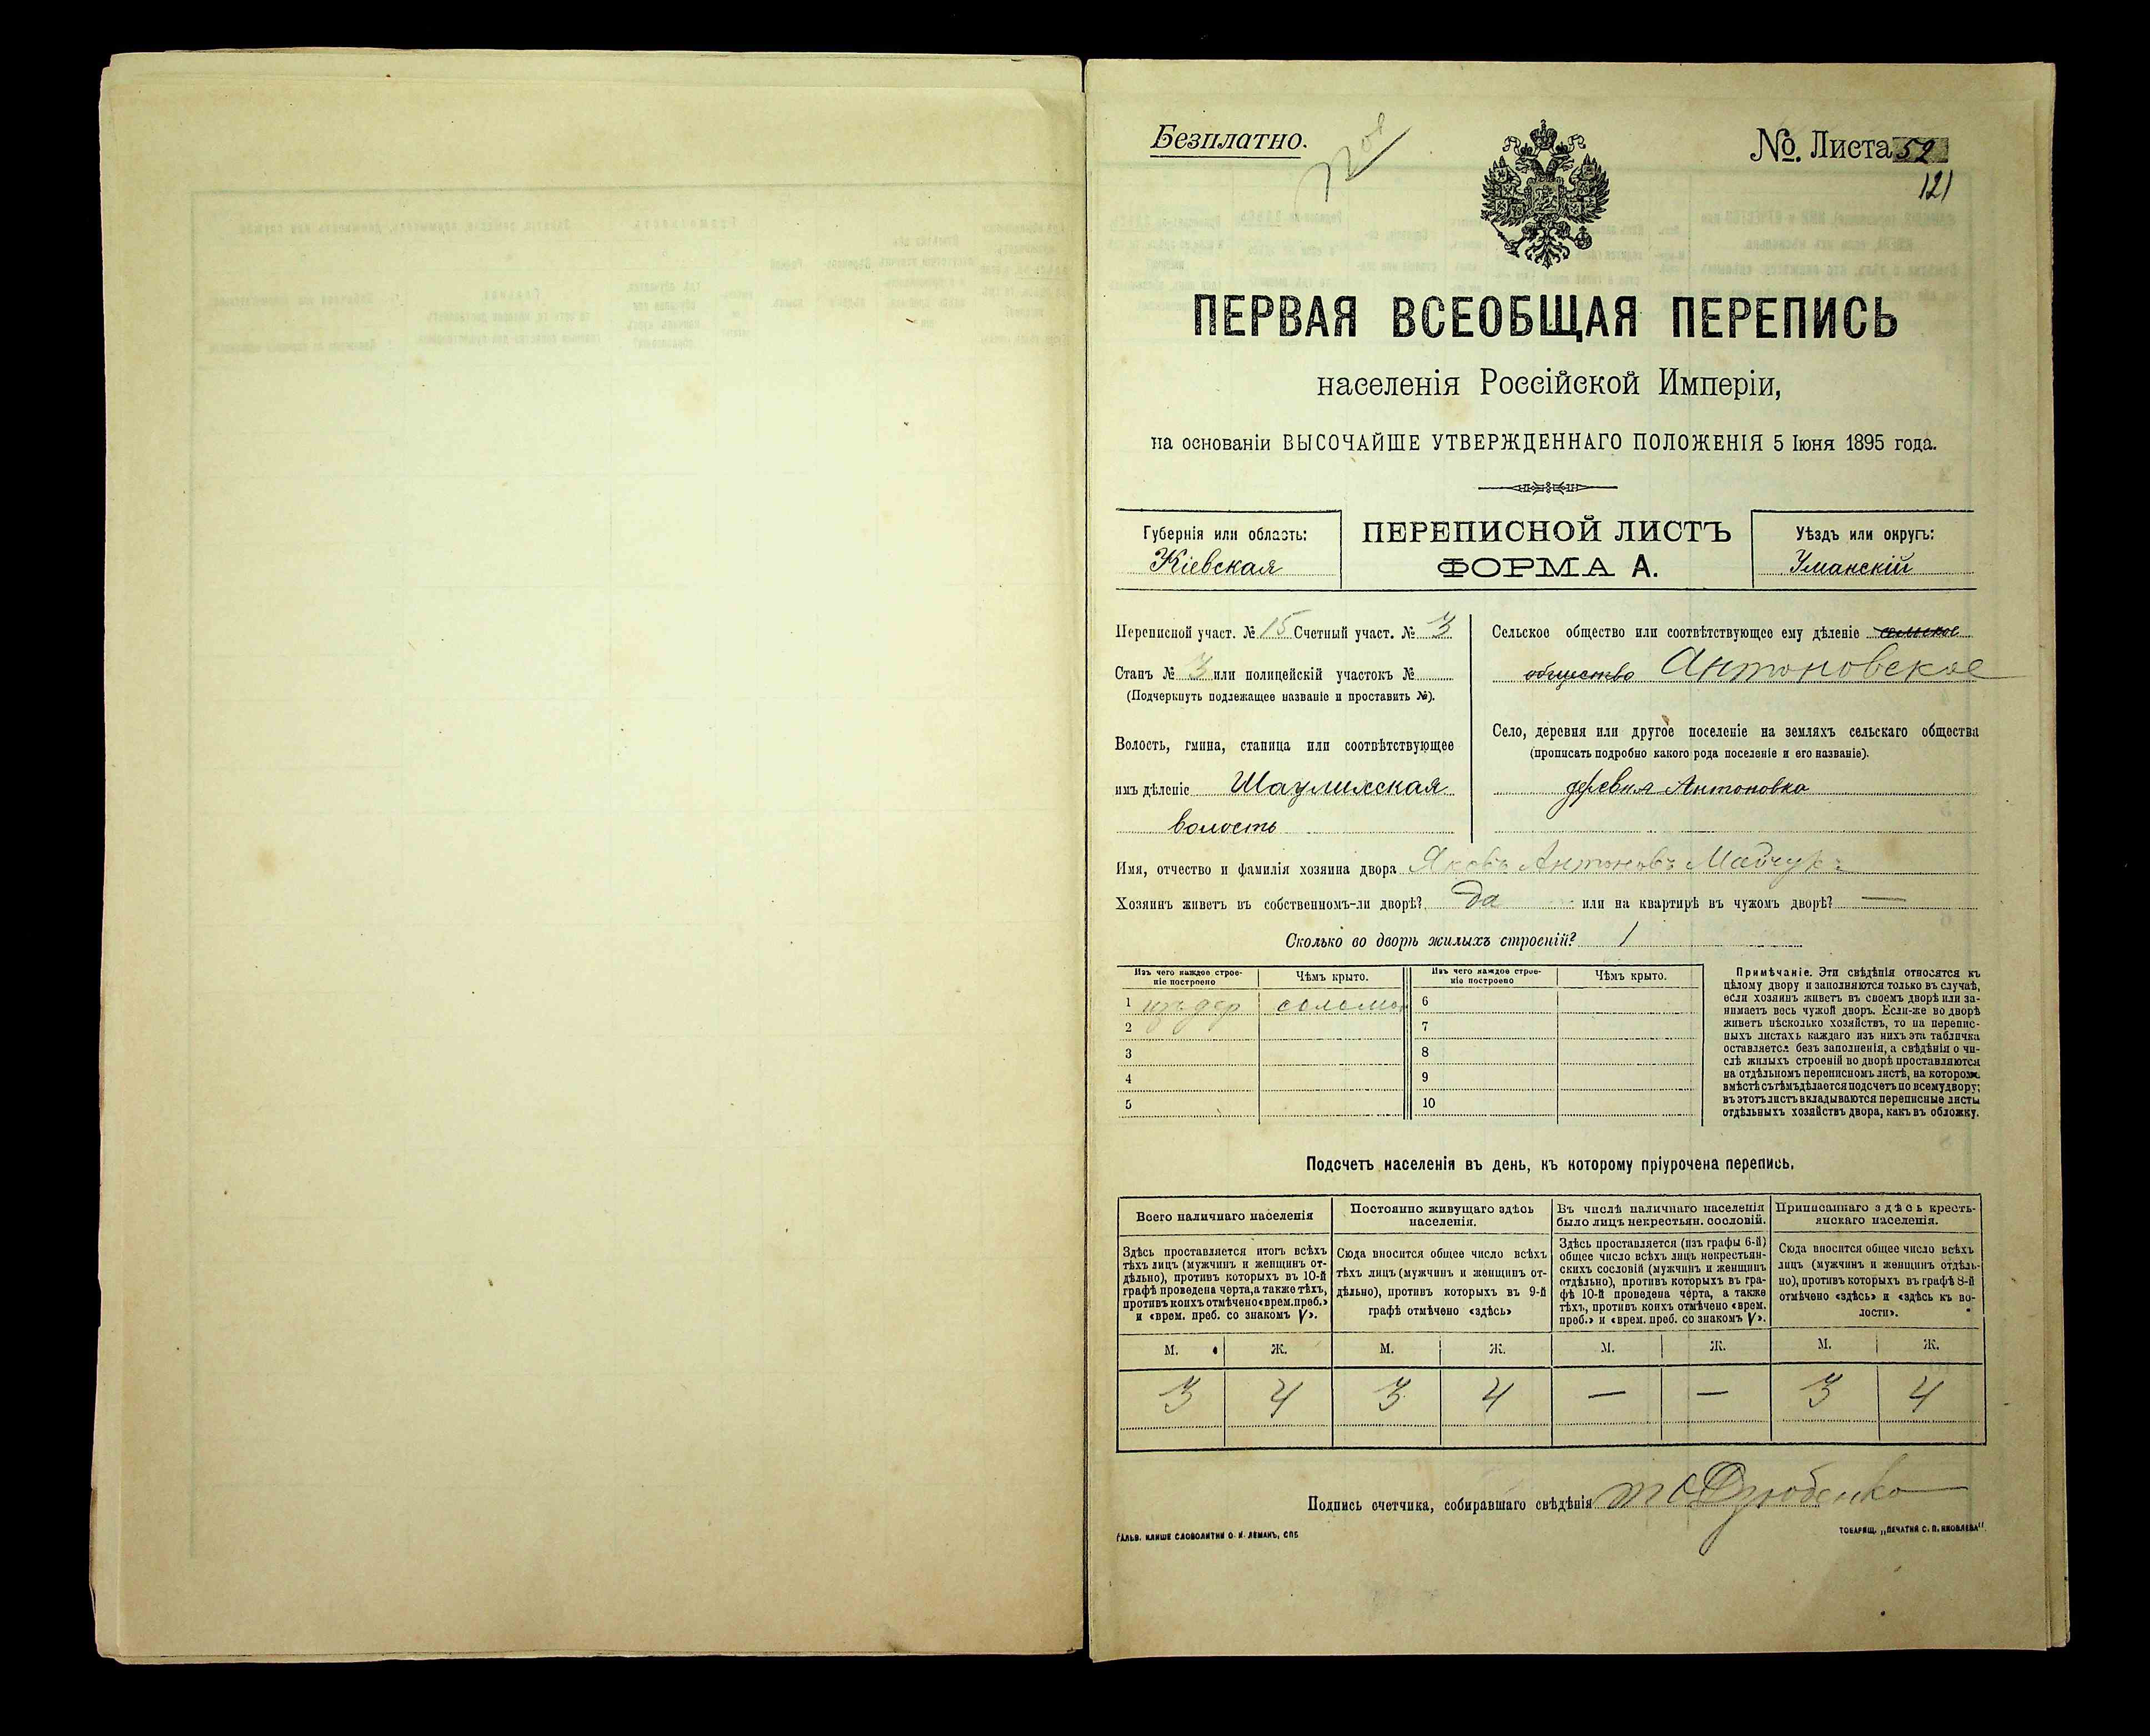 Безплатно.
№. Листа 52
121
ПЕРВАЯ ВСЕОБЩАЯ ПЕРЕПИСЬ
населенія Россійской Имперіи,
на основаніи ВЫСОЧАЙШЕ УТВЕРЖДЕННАГО ПОЛОЖЕНІЯ 5 Іюня 1895 года.
Губернія или область:
Кіевская
ПЕРЕПИСНОЙ ЛИСТЪ
ФОРМА А.
Уѣздъ или округъ:
Уманскій
Переписной участ. № 15 Счетный участ. № 3
Станъ № 3 или полицейскій участокъ №
(Подчеркнуть подлежащее названіе и проставить №).
Волость, гмина, станица или соотвѣтствующее
имъ дѣленіе
волость
Сельское общество или соотвѣтствующее ему дѣленіе сельское
общество Антоновское
Село, деревня или другое поселеніе на земляхъ сельскаго общества
(прописать подробно какого рода поселеніе и его названіе).
деревня Антоновка
Имя, отчество и фамилія хозяина двора Яковъ Антоновъ
Хозяинъ живетъ въ собственномъ-ли дворѣ? Да или на квартирѣ въ чужомъ дворѣ? —
Сколько во дворѣ жилыхъ строеній? 1
Изъ чего каждое строе-
ніе построено
Чѣмъ крыто.
Изъ чего каждое строе-
ніе построено
Чѣмъ крыто.
1 изъ дер солемой 6
2 7
3 8
4 9
5 10
Примѣчаніе. Эти свѣдѣнія относятся къ
цѣлому двору и заполняются только въ случаѣ,
если хозяинъ живетъ въ своемъ дворѣ или за-
нимаетъ весь чужой дворъ. Если-же во дворѣ
живетъ нѣсколько хозяйствъ, то на перепис-
ныхъ листахъ каждаго изъ нихъ эта табличка
оставляется безъ заполненія, а свѣдѣнія о чи-
слѣ жилыхъ строеній во дворѣ проставляются
на отдѣльномъ переписномъ листѣ, на которомъ
вмѣстѣ съ тѣмъ дѣлается подсчетъ по всему двору;
въ этотъ листъ вкладываются переписные листы
отдѣльныхъ хозяйствъ двора, какъ въ обложку.
Подсчетъ населенія въ день, къ которому пріурочена перепись.
Всего наличнаго населенія
Здѣсь проставляется итогъ всѣхъ
тѣхъ лицъ (мужчинъ и женщинъ от-
дѣльно), противъ которыхъ въ 10-й
графѣ проведена черта, а также тѣхъ,
противъ коихъ отмѣчено «врем. преб.»
и «врем. преб. со знакомъ V».
Постоянно живущаго здѣсь
населенія.
Сюда вносится общее число всѣхъ
тѣхъ лицъ (мужчинъ и женщинъ от-
дѣльно), противъ которыхъ въ 9-й
графѣ отмѣчено «здѣсь»
Въ числѣ наличнаго населенія
было лицъ некрестьян. сословій.
Здѣсь проставляется (изъ графы 6-й)
общее число всѣхъ лицъ некрестьян-
скихъ сословій (мужчинъ и женщинъ
отдѣльно), противъ которыхъ въ гра-
фѣ 10-й проведена черта, а также
тѣхъ, противъ коихъ отмѣчено «врем.
преб.» и «врем. преб. со знакомъ V».
Приписаннаго здѣсь кресть-
янскаго населенія.
Сюда вносится общее число всѣхъ
лицъ (мужчинъ и женщинъ отдѣль-
но), противъ которыхъ въ графѣ 8-й
отмѣчено «здѣсь» и «здѣсь къ во-
лости».
М. Ж. М. Ж. М. Ж. М. Ж.
3 4 3 4 — — 3 4
Подпись счетчика, собиравшаго свѣдѣнія
ГАЛЬВ. КЛИШЕ СЛОВОЛИТНИ О. И. ЛЕМАНЪ, СПБ
ТОВАРИЩ. „ПЕЧАТНЯ С. П. ЯКОВЛЕВА"